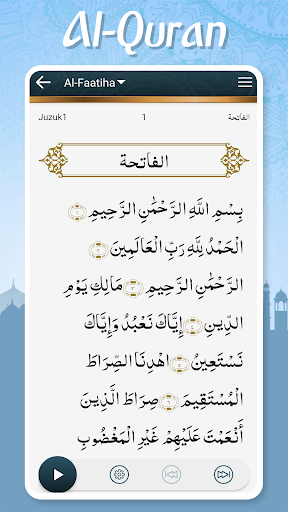 Al-Quran
Al-Faatiha
Juzuk1 1 الفاتحة
الفاتحة
بِسْمِ اللَّهِ الرَّحْمَٰنِ الرَّحِيمِ ١
الْحَمْدُ لِلَّهِ رَبِّ الْعَالَمِينَ ٢
الرَّحْمَٰنِ الرَّحِيمِ ٣ مَالِكِ يَوْمِ
الدِّينِ ٤ إِيَّاكَ نَعْبُدُ وَإِيَّاكَ
نَسْتَعِينُ ٥ اهْدِنَا الصِّرَاطَ
الْمُسْتَقِيمَ ٦ صِرَاطَ الَّذِينَ
أَنْعَمْتَ عَلَيْهِمْ غَيْرِ الْمَغْضُوبِ